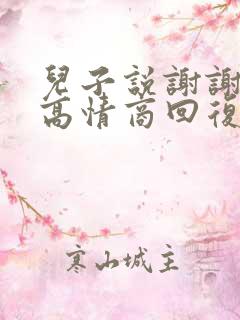 兒子説謝謝
高情商回復
寒山城主